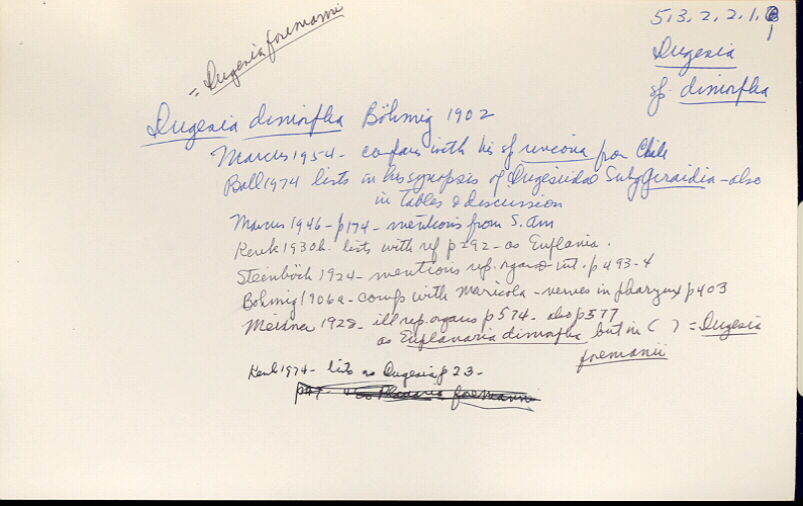 = Dugesia foremanii
5.3.2.2.1.
1
Dugesia
sp. dimorpha
Dugesia dimorpha Böhmig 1902
Marcus 1954 - compares with his sp rincona from Chile
Ball 1974 lists in his synopsis of Dugesiidae Subg Girardia - also
in tables & discussion
Marcus 1946 - p 174 - mentions from S. Am
Kenk 1930b - lists with ref p 292 - as Euplanaria.
Steinböck 1924 - mentions rep. organs int. p 493-4
Böhmig 1906a - comps with Maricola - nerves in pharynx p 403
Meixner 1928 - ill rep. organs p 574 - also p 577
as Euplanaria dimorpha but in ( ) = Dugesia
foremanii
Kenk 1974 - lists as Dugesia p 23 -